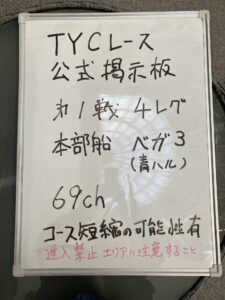 TYCレース
公式掲示板
第1戦 4レグ
本部船 ベガ3
(青ハル)
69ch
コース短縮の可能性有
進入禁止エリアに注意すること